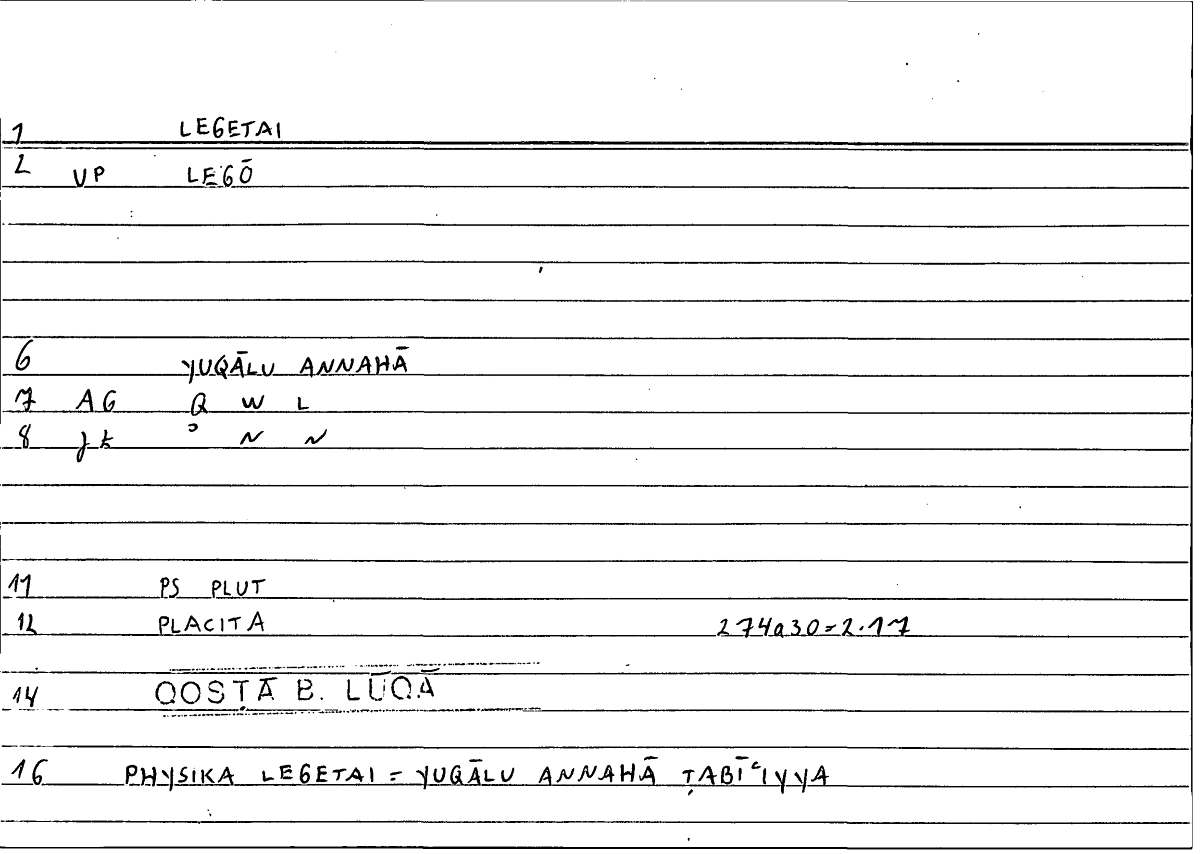 1 LEGETAI
2 VP LEGŌ
6 YUQĀLU ANNAHĀ
7 AG Q W L
8 jk ʾ N N
11 PS PLUT
12 PLACITA 274a30=2.17
14 QOSṬĀ B. LŪQĀ
16 PHYSIKA LEGETAI = YUQĀLU ANNAHĀ ṬABĪʿIYYA